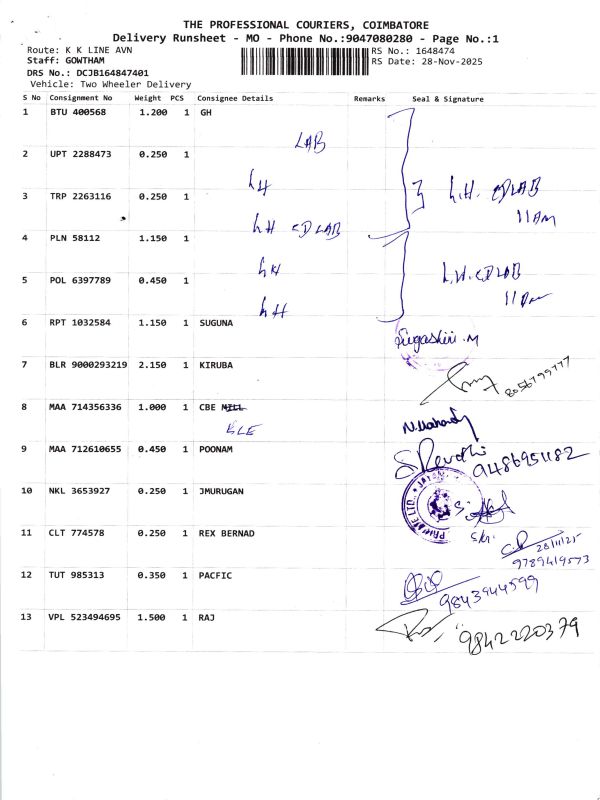 THE PROFESSIONAL COURIERS, COIMBATORE
Delivery Runsheet - MO - Phone No.:9047080280 - Page No.:1
Route: K K LINE AVN
RS No.: 1648474
Staff: GOWTHAM
RS Date: 28-Nov-2025
DRS No.: DCJB164847401
Vehicle: Two Wheeler Delivery
S No Consignment No Weight PCS Consignee Details Remarks Seal & Signature
1 BTU 400568 1.200 1 GH
LAB
2 UPT 2288473 0.250 1
LH
3 TRP 2263116 0.250 1 L.H. CDLAB
11AM
LH CDLAB
4 PLN 58112 1.150 1
LH
5 POL 6397789 0.450 1 L.H. CDLAB
LH
6 RPT 1032584 1.150 1 SUGUNA
7 BLR 9000293219 2.150 1 KIRUBA
8056799777
8 MAA 714356336 1.000 1 CBE MILL
9 MAA 712610655 0.450 1 POONAM
S. Revathi
9486951182
10 NKL 3653927 0.250 1 JMURUGAN
PRIVATE LTD.
11 CLT 774578 0.250 1 REX BERNAD
28/11/25
9789419573
12 TUT 985313 0.350 1 PACFIC
9843944599
13 VPL 523494695 1.500 1 RAJ
9842220379